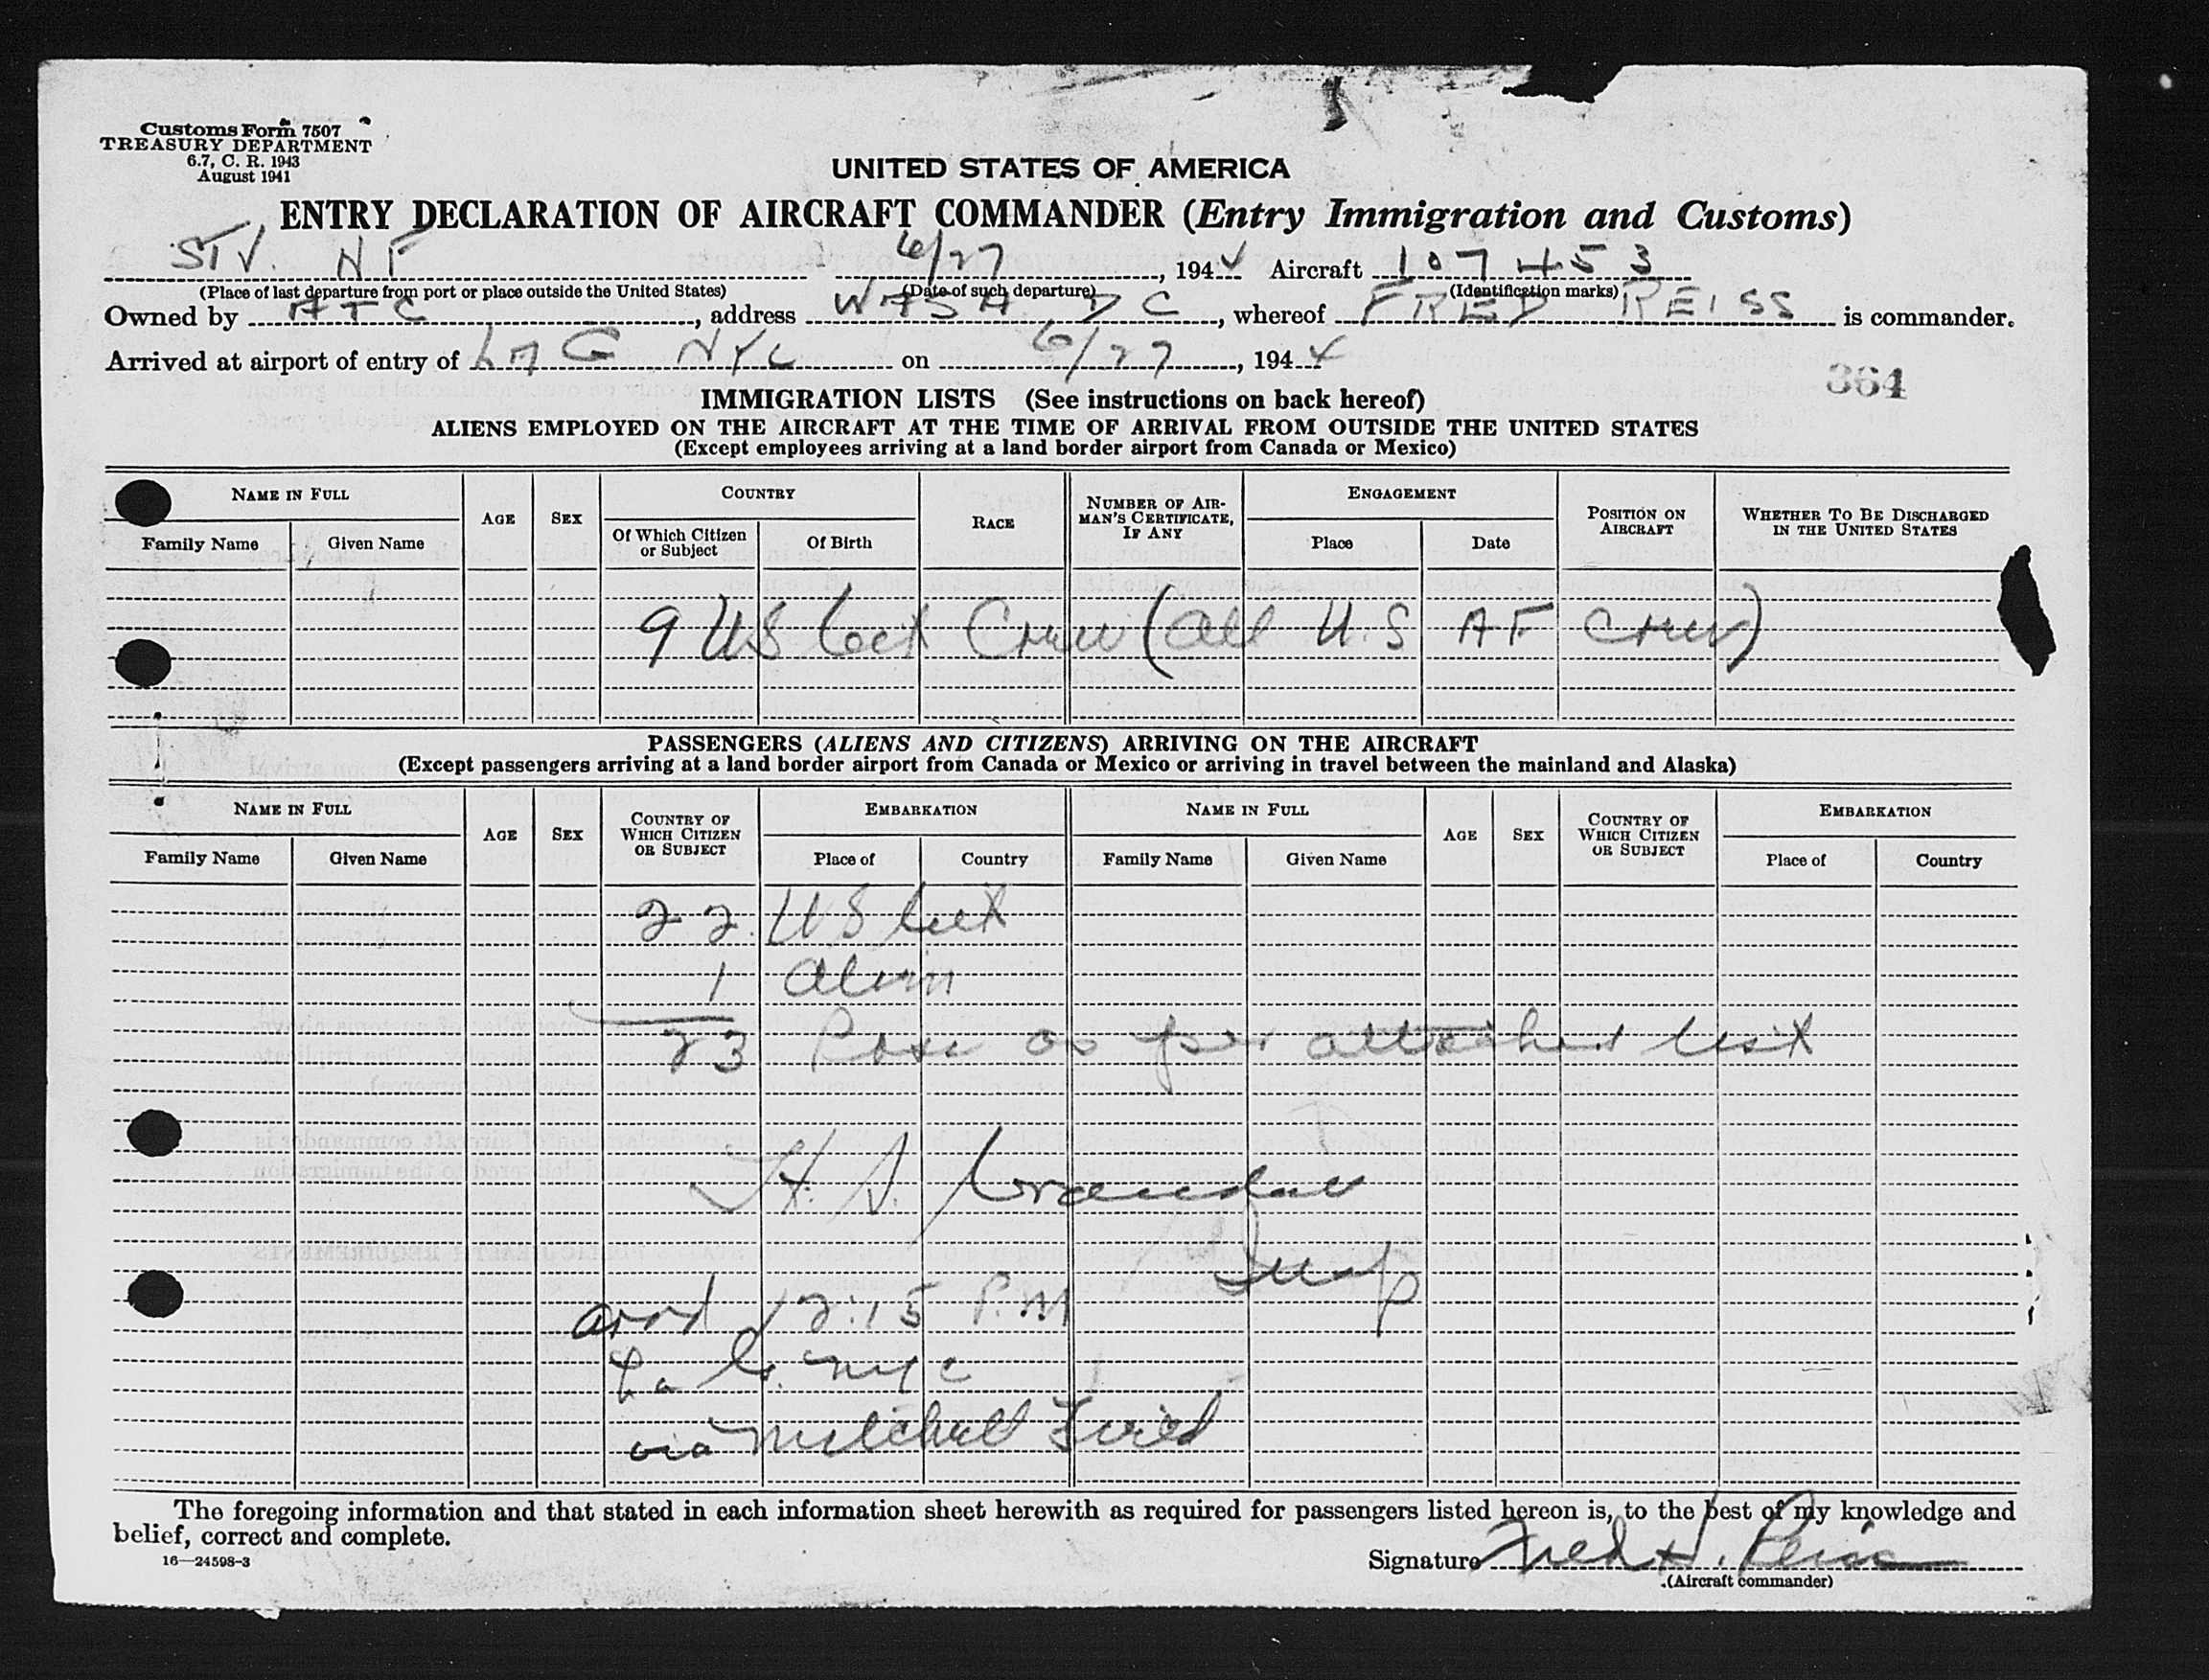 Customs Form 7507
TREASURY DEPARTMENT
6.7, C. R. 1943
August 1941
UNITED STATES OF AMERICA
ENTRY DECLARATION OF AIRCRAFT COMMANDER (Entry Immigration and Customs)
STV. NF 6/27, 1944 Aircraft 107453
(Place of last departure from port or place outside the United States) (Date of such departure) (Identification marks)
Owned by ATC, address WASH DC, whereof FRED REISS is commander.
Arrived at airport of entry of LAG NYC on 6/27, 1944
364
IMMIGRATION LISTS (See instructions on back hereof)
ALIENS EMPLOYED ON THE AIRCRAFT AT THE TIME OF ARRIVAL FROM OUTSIDE THE UNITED STATES
(Except employees arriving at a land border airport from Canada or Mexico)
NAME IN FULL AGE SEX COUNTRY RACE NUMBER OF AIRMAN'S CERTIFICATE, IF ANY ENGAGEMENT POSITION ON AIRCRAFT WHETHER TO BE DISCHARGED IN THE UNITED STATES
Family Name Given Name Of Which Citizen or Subject Of Birth Place Date
9 US Cit Crew (All U.S AF Crew)
PASSENGERS (ALIENS AND CITIZENS) ARRIVING ON THE AIRCRAFT
(Except passengers arriving at a land border airport from Canada or Mexico or arriving in travel between the mainland and Alaska)
NAME IN FULL AGE SEX COUNTRY OF WHICH CITIZEN OR SUBJECT EMBARKATION NAME IN FULL AGE SEX COUNTRY OF WHICH CITIZEN OR SUBJECT EMBARKATION
Family Name Given Name Place of Country Family Name Given Name Place of Country
22 US Cit
1 Alien
23 Pass as per attached list
Insp
arrd 12:15 P.M
La G. NYC
via Mitchell Field
The foregoing information and that stated in each information sheet herewith as required for passengers listed hereon is, to the best of my knowledge and
belief, correct and complete.
16—24598-3
Signature Fred H. Reiss
(Aircraft commander)